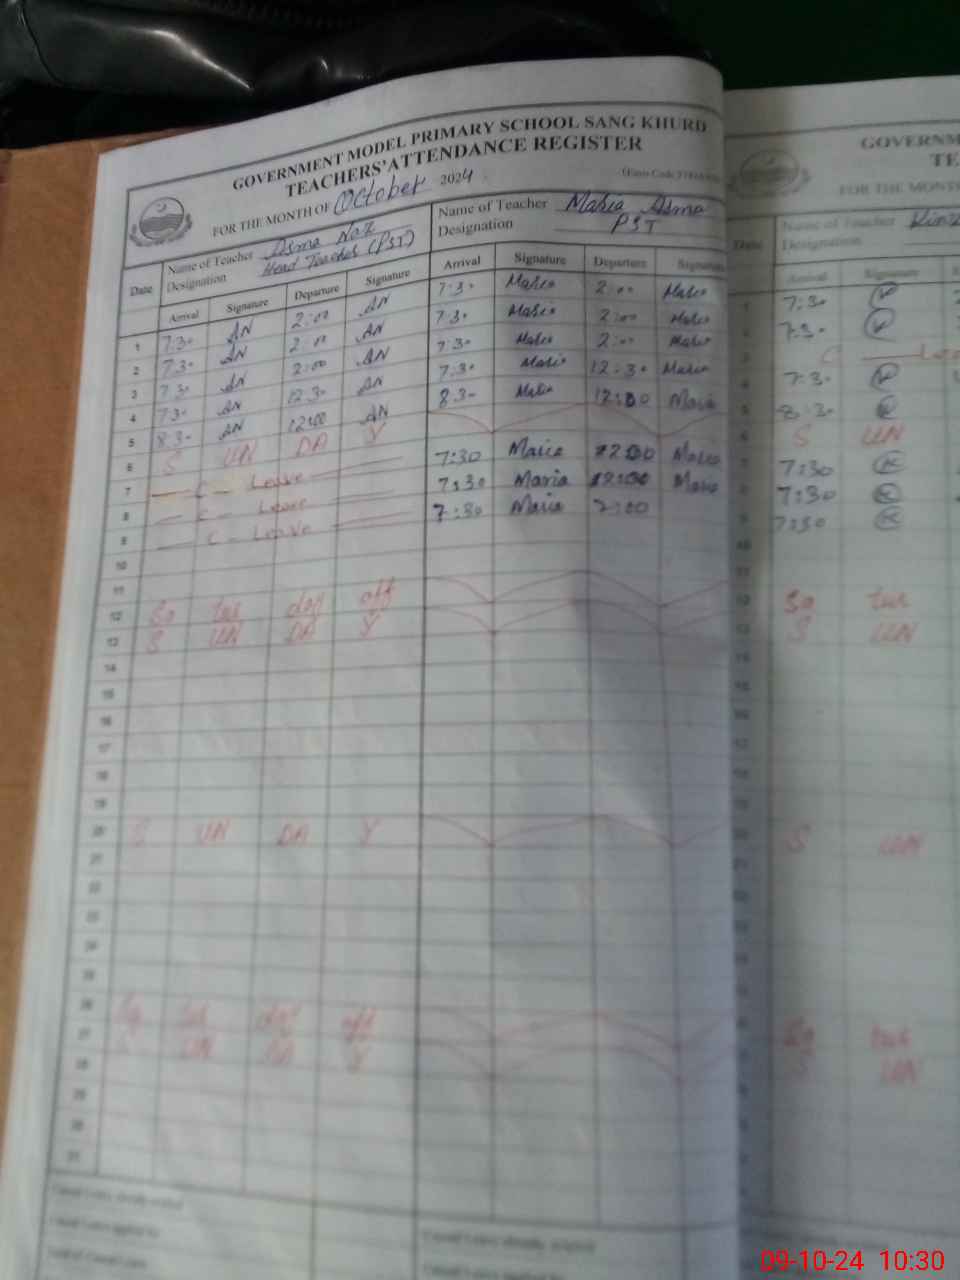 GOVERNMENT MODEL PRIMARY SCHOOL SANG KHURD
TEACHERS' ATTENDANCE REGISTER
FOR THE MONTH OF October 2024
Name of Teacher Asma Naz
Designation Head Teacher (PST)
Name of Teacher Maria Asma
Designation PST
Date Arrival Signature Departure Signature Arrival Signature Departure Signature
1 7:30 AN 2:00 AN 7:30 Maria 2:00 Maria
2 7:30 AN 2:00 AN 7:30 Maria 2:00 Maria
3 7:30 AN 2:00 AN 7:30 Maria 2:00 Maria
4 7:30 AN 12:30 AN 7:30 Maria 12:30 Maria
5 8:30 AN 12:00 AN 8:30 Maria 12:00 Maria
6 S UN DA Y
7 C - Leave 7:30 Maria 2:00 Maria
8 C - Leave 7:30 Maria 2:00 Maria
9 C - Leave 7:30 Maria 2:00
10
11
12 Sa tur day off
13 S UN DA Y
14
15
16
17
18
19
20 S UN DA Y
21
22
23
24
25
26 Sa tur day off
27 S UN DA Y
28
29
30
31
GOVERNM
TE
FOR THE MONTH
Date
Name of Teacher
Designation
Arrival Signature
7:30
7:30
C Lea
7:30
8:30
S UN
7:30
7:30
7:30
Sa tur
S UN
S UN
Sa tur
S UN
09-10-24 10:30